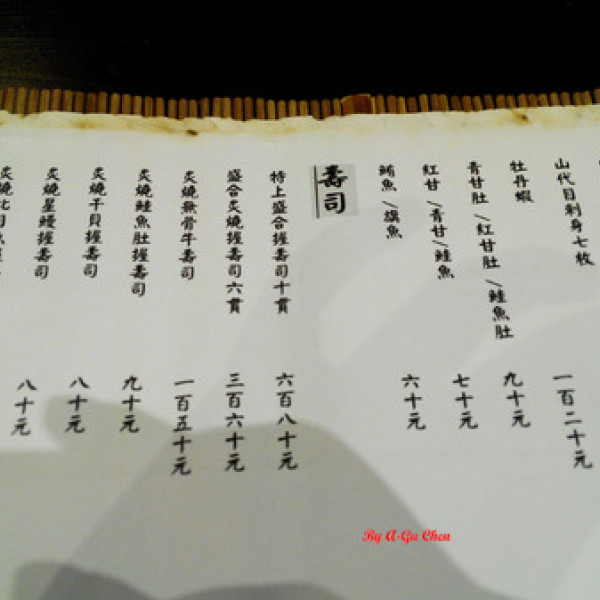 山代目刺身七枚 一百二十元
牡丹蝦 九十元
青甘肚/紅甘肚/鮭魚肚 七十元
紅甘/青甘/鮭魚 六十元
鮪魚/旗魚
壽司
特上盛合握壽司十貫 六百八十元
盛合炙燒握壽司六貫 三百六十元
炙燒無骨牛壽司 一百五十元
炙燒鮭魚肚握壽司 九十元
炙燒干貝握壽司 八十元
炙燒星鰻握壽司 八十元
炙燒
By A-Gu Chen